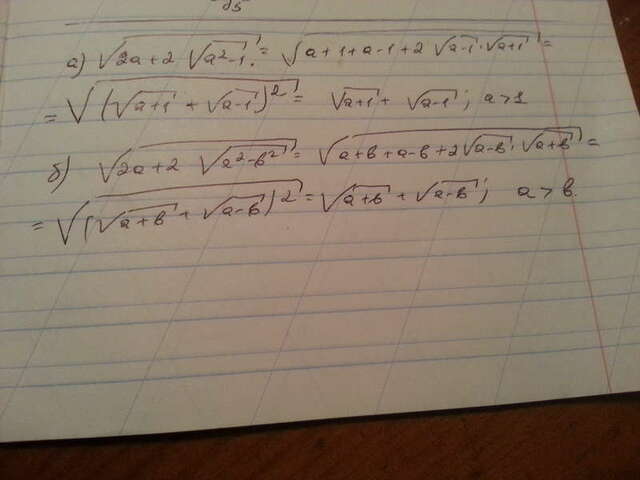 25
а) √(2a+2 √(a²-1)) = √(a+1+a-1+2 √(a-1)·√(a+1)) =
= √((√(a+1) + √(a-1))²) = √(a+1) + √(a-1); a>1
б) √(2a+2 √(a²-b²)) = √(a+b+a-b+2√(a-b)·√(a+b)) =
= √((√(a+b) + √(a-b))²) = √(a+b) + √(a-b); a>b.